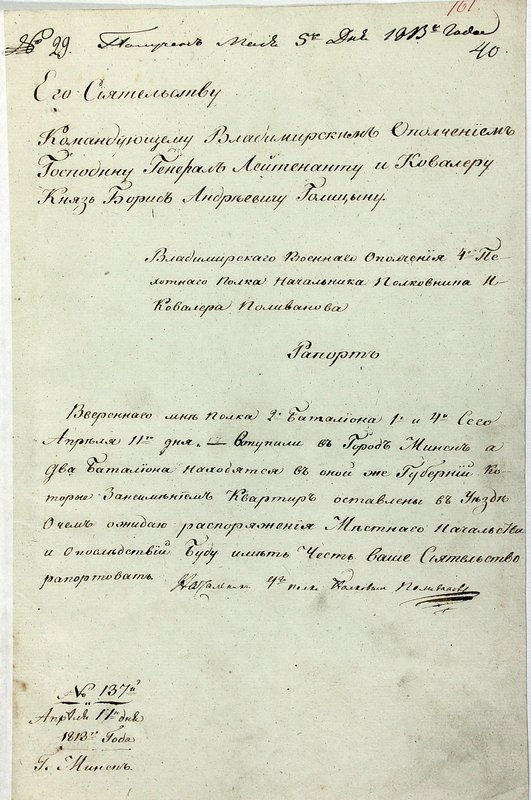 161.
№ 29. Полученъ Мая 5го Дня 1813го Года
40.
Его Сіятельству
Командующему Владимирскимъ Ополченіемъ
Господину Генералъ Лейтенанту и Ковалеру
Князь Борисъ Андреевичу Голицыну.
Владимирскаго Военнаго Ополченія 4го Пе-
хотнаго Полка Начальника Полковника И
Ковалера Поливанова
Рапортъ
Ввереннаго мнѣ полка 2й Баталіона 1й и 4й Сего
Апрѣля 11го дня. — Вступили въ Городъ Минскъ а
два Баталіона находятся въ оной же Губерніи Ко-
торые Занеимѣніемъ Квартиръ оставлены въ Уѣзде
Очемъ ожидаю распоряженія Мѣстнаго Начальства
и Опослѣдствіи Буду имѣть Честь Ваше Сіятельство
рапортовать.
Начальникъ 4го полка Полковникъ Поливановъ
№ 137й
Апрѣля 17го дня
1813го Года
Г. Минскъ.